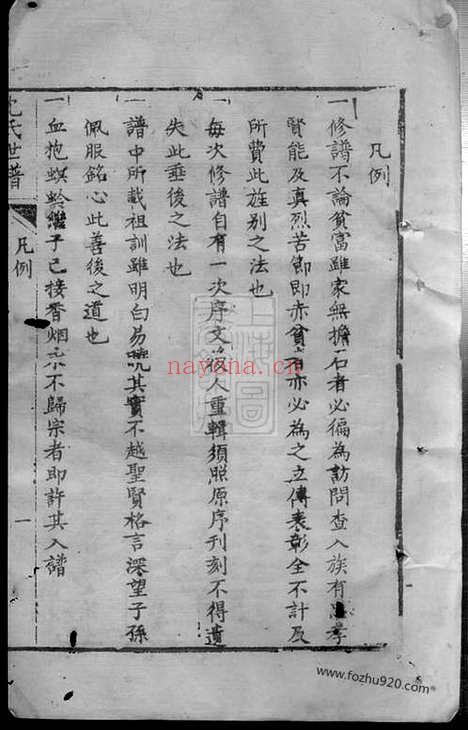 凡例
一修譜不論貧富雖家無擔石者必徧為訪問查入族有忠孝
賢能及真烈苦節即赤貧者亦必為之立傳表彰全不計及
所費此旌別之法也
一每次修譜自有一次序文後人重輯須照原序刊刻不得遺
失此垂後之法也
一譜中所載祖訓雖明白易曉其實不越聖賢格言深望子孫
佩服銘心此善後之道也
一血抱螟蛉繼子已接香烟永不歸宗者即許其入譜
沈氏世譜
凡例
一
上海圖
nayana.com
www.fozhu920.com